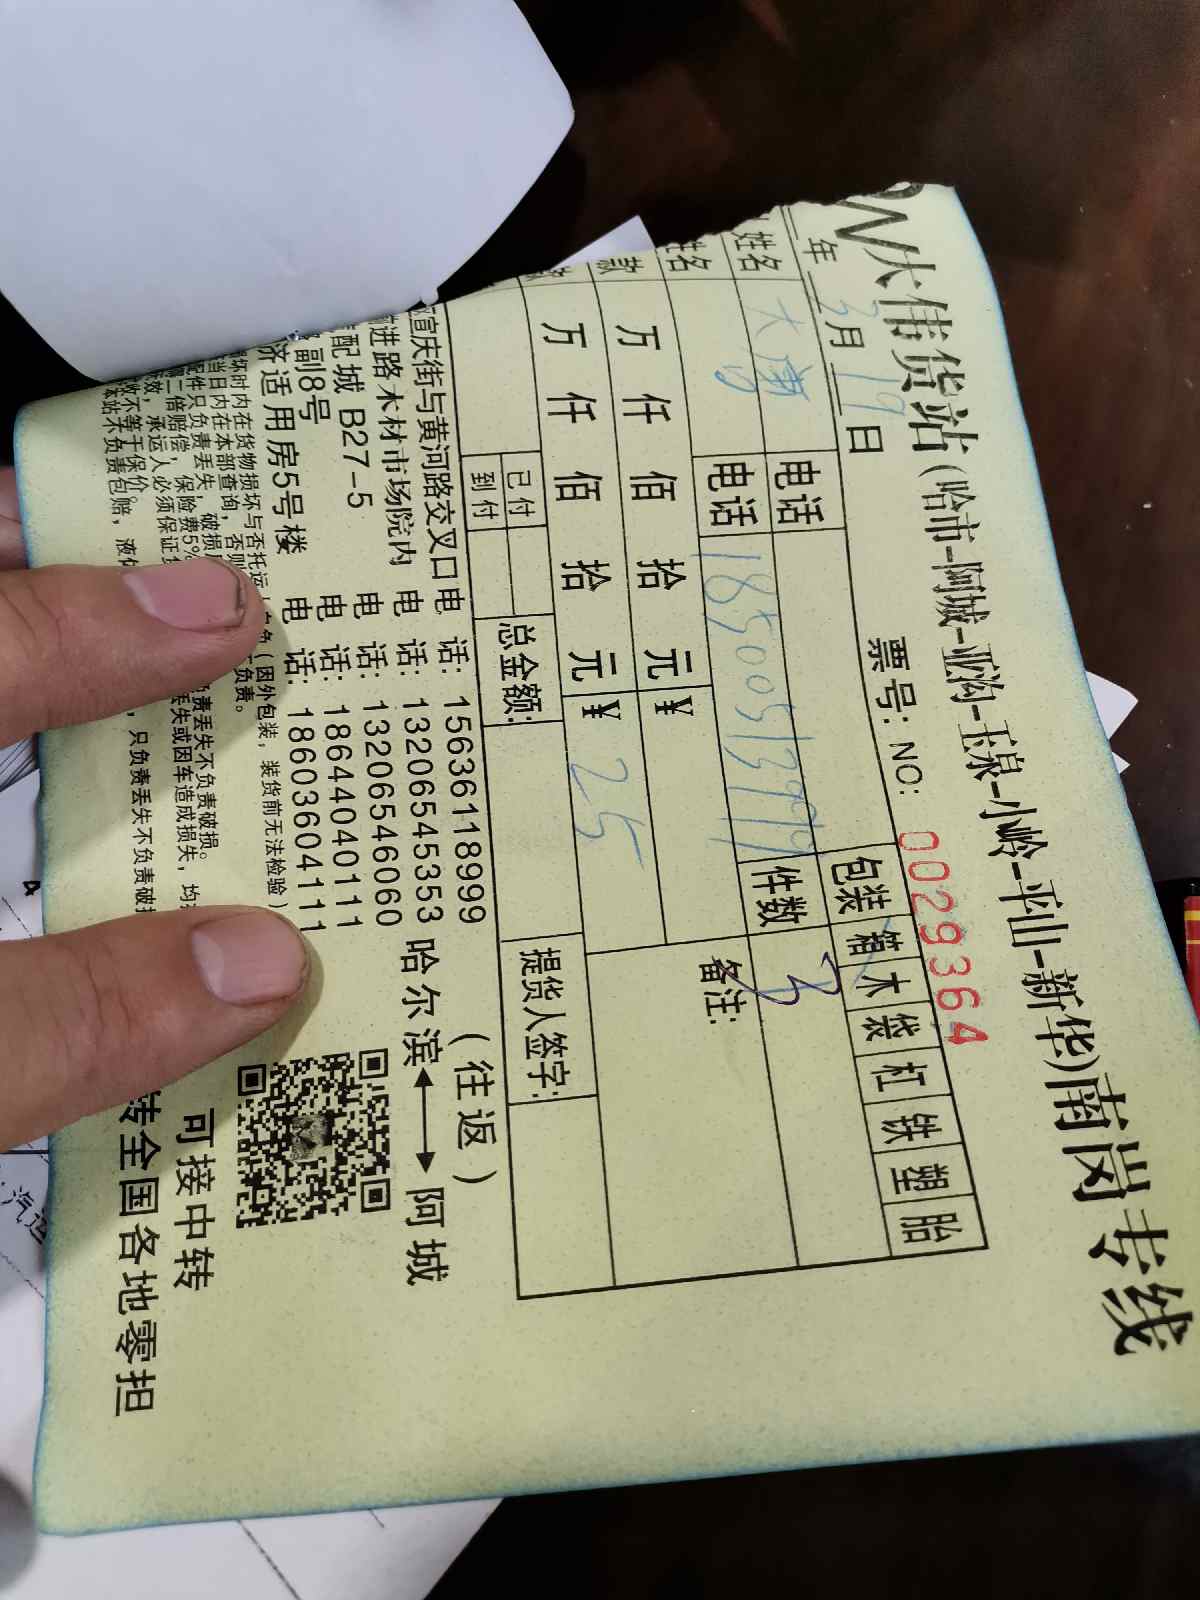 大伟货站(哈市-阿城-亚沟-玉泉-小岭-平山-新华)南岗专线
年 3月19日 票号: NO: 0029364
姓名 电话 包装 箱 木 袋 杠 铁 塑 胎
姓名 电话 18500513999 件数 3
款 万 仟 佰 拾 元 ¥ 备注:
万 仟 佰 拾 元 ¥ 25
已付 到付 总金额: 提货人签字:
宣庆街与黄河路交叉口 电 话: 15636118999 (往返)
进路木材市场院内 电 话: 13206545353 哈尔滨 ⟷ 阿城
配城 B27-5 电 话: 13206546060
副8号 电 话: 18644040111
济适用房5号楼 电 话: 18603604111
坏时内在货物损坏与否托运 (因外包装，装货前无法检验)
当日内在本部查询，否则 负责。
配件只负责丢失，破损 负责丢失不负责破损。
二倍赔偿，保险费5% 丢失或因车造成损失，均
效，承运人必须保证
不等于保价。 只负责丢失不负责破
本站不负责包赔，液
可接中转
转全国各地零担